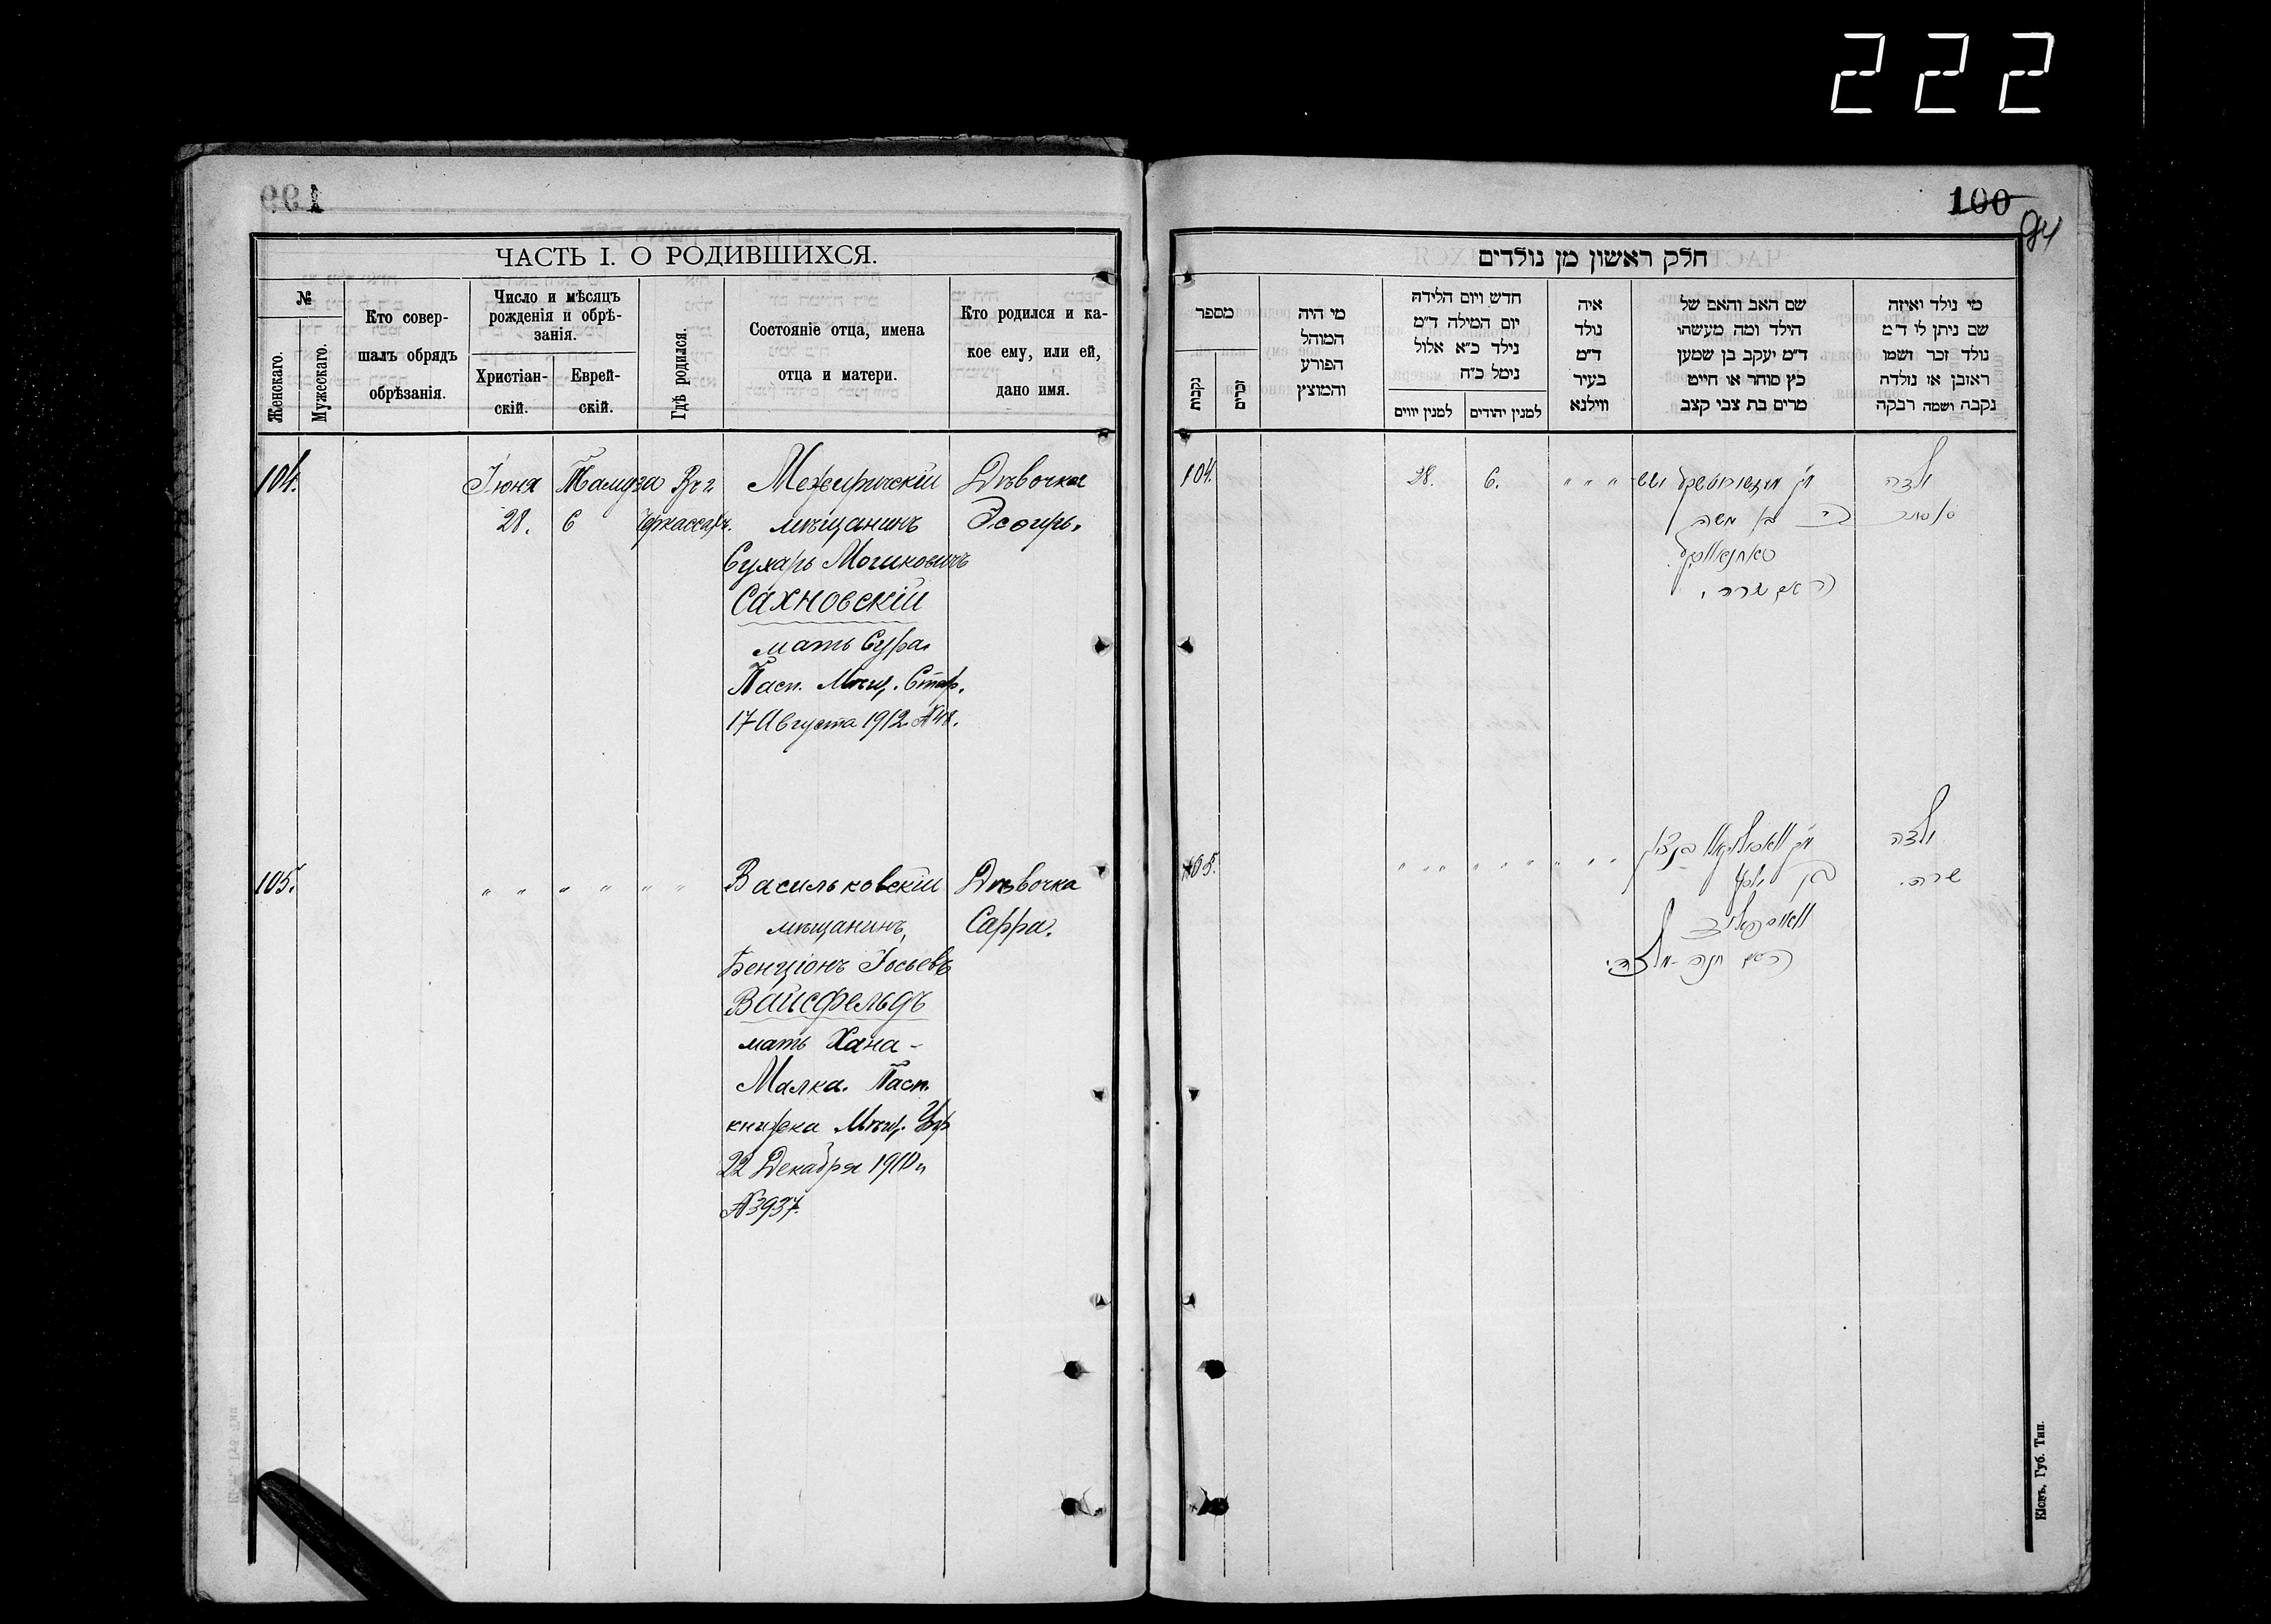 222
100
94
ЧАСТЬ I. О РОДИВШИХСЯ.
№
Женскаго.
Мужескаго.
Кто совер-
шалъ обрядъ
обрѣзанія.
Число и мѣсяцъ
рожденія и обрѣ-
занія.
Христіан-
скій.
Еврей-
скій.
Гдѣ родился.
Состояніе отца, имена
отца и матери.
Кто родился и ка-
кое ему, или ей,
дано имя.
104.
Іюня
28.
Тамуза
6
Въ г.
Черкассахъ.
Межиричскій
мѣщанинъ
Сухарь Мошковичъ
Сахновскій
мать Сура.
Пасп. Мѣщ. Стар.
17 Августа 1912. №48.
Дѣвочка
Эсѳирь.
105.
" " " " " "
Васильковскій
мѣщанинъ,
Бенціонъ Іосьевъ
Вайсфельдъ
мать Хана-
Малка. Пасп.
книжка Мѣщ. Упр
22 Декабря 1910 г.
№3937.
Дѣвочка
Сарра.
חלק ראשון מן נולדים
מספר
נקבות
זכרים
מי היה
המוהל
הפורע
והמוצץ
חדש ויום הלידה
יום המילה ד״מ
נילד כ״א אלול
נימל כ״ח
למנין יווים
למנין יהודים
איה
נולד
ד״מ
בעיר
ווילנא
שם האב והאם של
הילד ומה מעשהו
ד״מ יעקב בן שמעון
כץ סוחר או חייט
מרים בת צבי קצב
מי נולד ואיזה
שם ניתן לי ד״מ
נולד זכר ושמו
ראובן או נולדה
נקבה ושמה רבקה
104.
28.
6.
" " "
בן משה
סאחנאווסקי
האם שרה.
ילדה
אסתר
105.
" " " " " " " " "
בן יוסף
ווייספעלד
האם חנה-מלכה.
ילדה
שרה.
Кіевъ, Губ. Тип.